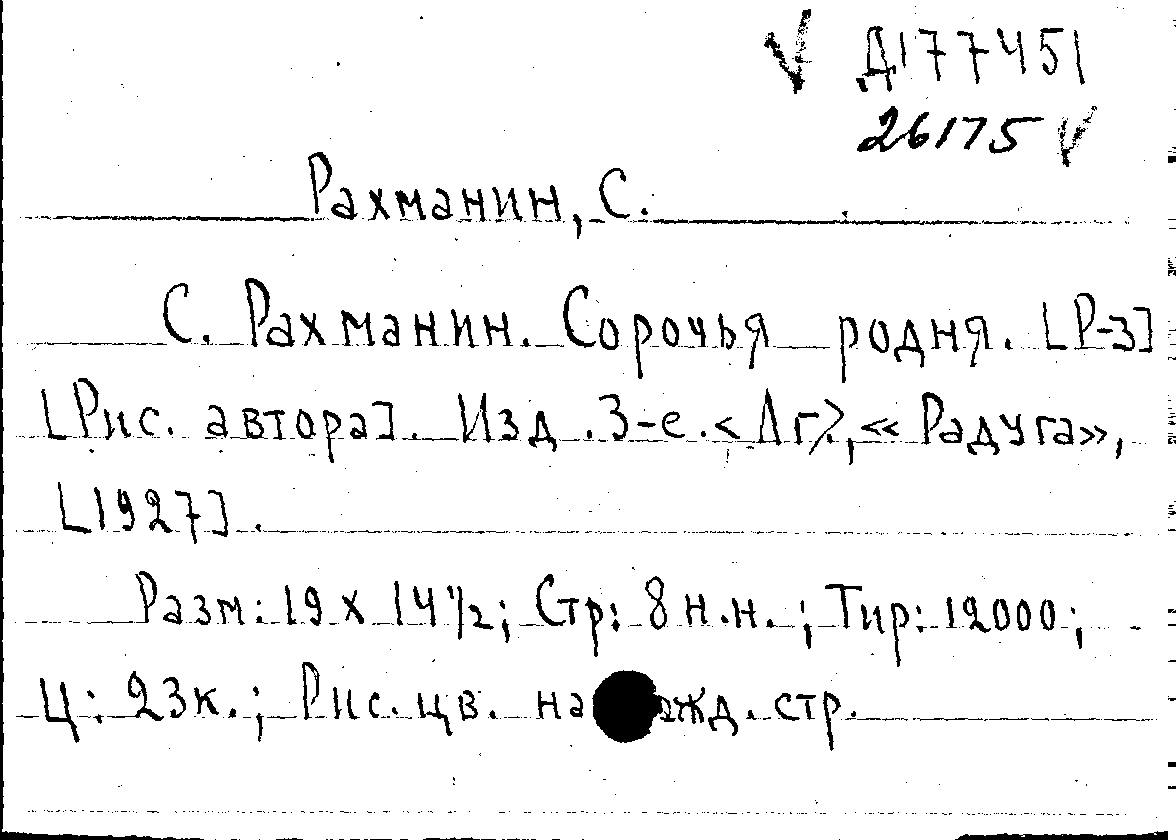 √ Д177451
26175 √
Рахманин, С.
С. Рахманин. Сорочья родня. [Р-3]
[Рис. автора]. Изд. 3-е. <Лг>, «Радуга»,
[1927].
Разм: 19 x 14 1/2; Стр: 8 н.н.; Тир: 12000;
Ц: 23к.; Рис. цв. на ажд. стр.